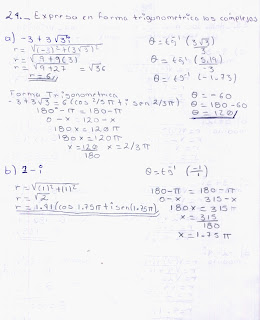 24._ Expresa en forma trigonometrica los complejos
a) -3 + 3√3 i
r = √(-3)² + (3√3)²
r = √9 + 9(3)
r = √9 + 27 = √36
r = 6
θ = tg⁻¹ (3√3)
-3
θ = tg⁻¹ (5.19)
-3
θ = tg⁻¹ (-1.73)
θ = -60
θ = 180 - 60
θ = 120
Forma Trigonometrica
-3 + 3√3 = 6 (cos 2/3 π + i sen 2/3 π)
180 - π = 180 - π
0 - x 120 - x
180 x = 120 π
180 x = 120 π
x = 120 x = 2/3 π
180
b) 1 - i
r = √(1)² + (1)²
r = √2
r = 1.41 (cos 1.75 π + i sen (1.75 π)
θ = tg⁻¹ (-1)
1
180 - π = 180 - π
0 - x 315 - x
180 x = 315
x = 315
180
x = 1.75 π